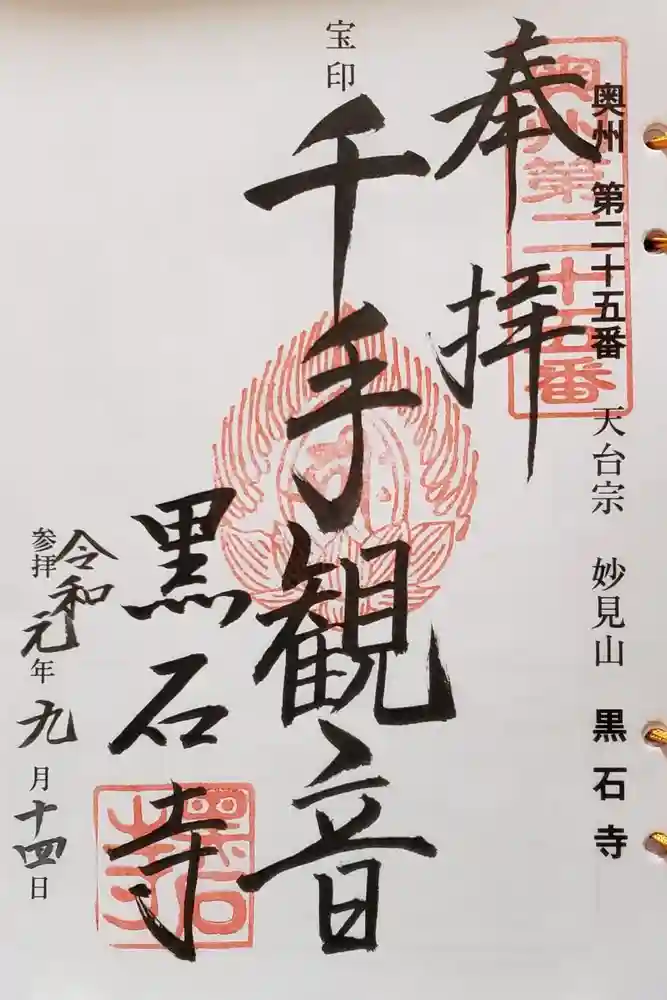 奥州 第二十五番 天台宗 妙見山 黒石寺
奥州第二十五番
奉拝
宝印
千手観音
黒石寺
黒石寺
参拝 令和元年九月十四日